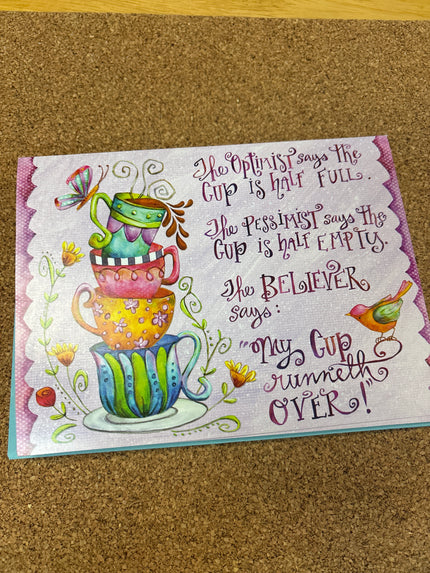 The Optimist says the
Cup is half full.
The Pessimist says the
Cup is half empty.
The Believer
says:
"My Cup
runneth
over!"